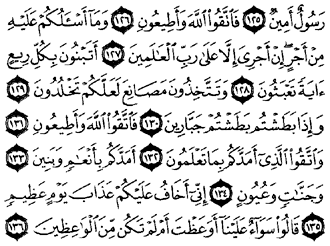 رَسُولٌ أَمِينٌ ١٢٥ فَاتَّقُوا اللَّهَ وَأَطِيعُونِ ١٢٦ وَمَا أَسْـَٔلُكُمْ عَلَيْهِ
مِنْ أَجْرٍ إِنْ أَجْرِىَ إِلَّا عَلَىٰ رَبِّ الْعَـٰلَمِينَ ١٢٧ أَتَبْنُونَ بِكُلِّ رِيعٍ
ءَايَةً تَعْبَثُونَ ١٢٨ وَتَتَّخِذُونَ مَصَانِعَ لَعَلَّكُمْ تَخْلُدُونَ ١٢٩
وَإِذَا بَطَشْتُم بَطَشْتُمْ جَبَّارِينَ ١٣٠ فَاتَّقُوا اللَّهَ وَأَطِيعُونِ ١٣١
وَاتَّقُوا الَّذِىٓ أَمَدَّكُم بِمَا تَعْلَمُونَ ١٣٢ أَمَدَّكُم بِأَنْعَـٰمٍ وَبَنِينَ ١٣٣
وَجَنَّـٰتٍ وَعُيُونٍ ١٣٤ إِنِّىٓ أَخَافُ عَلَيْكُمْ عَذَابَ يَوْمٍ عَظِيمٍ
١٣٥ قَالُوا سَوَآءٌ عَلَيْنَآ أَوَعَظْتَ أَمْ لَمْ تَكُن مِّنَ الْوَٰعِظِينَ ١٣٦